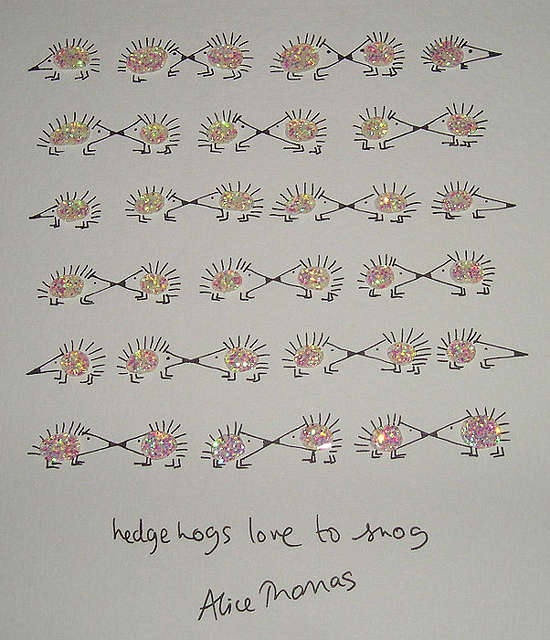 hedgehogs love to snog
Alice Thomas